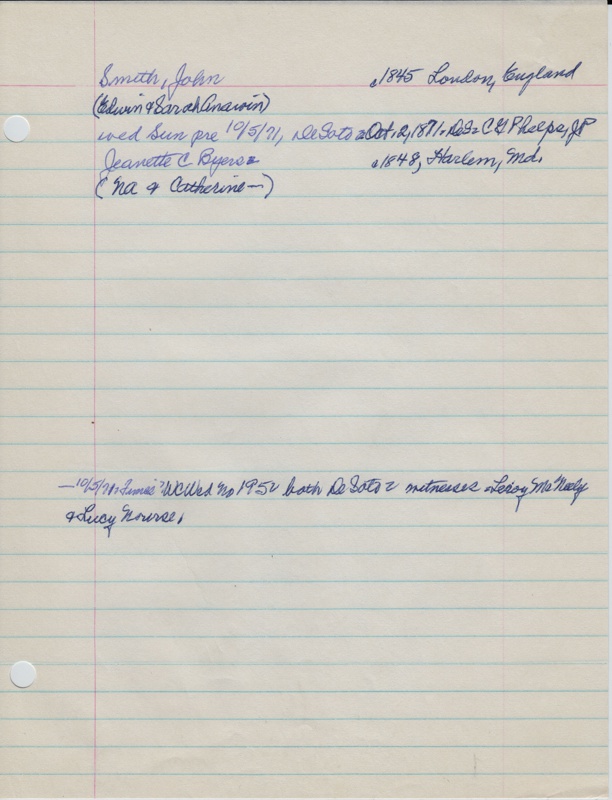 Smith, John c1845 London, England
(Edwin & Sarah Anawin)
wed Sun pre 10/5/71, DeSoto = Oct. 2, 1871 = DeS = C G Phelps, JP
Jeanette C. Byers = c1848, Harlem, Md.
(NA & Catherine —)
— 10/5/71 = Times = WCWed No 195 = both DeSoto = witnesses = Leroy McNeely
& Lucy Nourse.